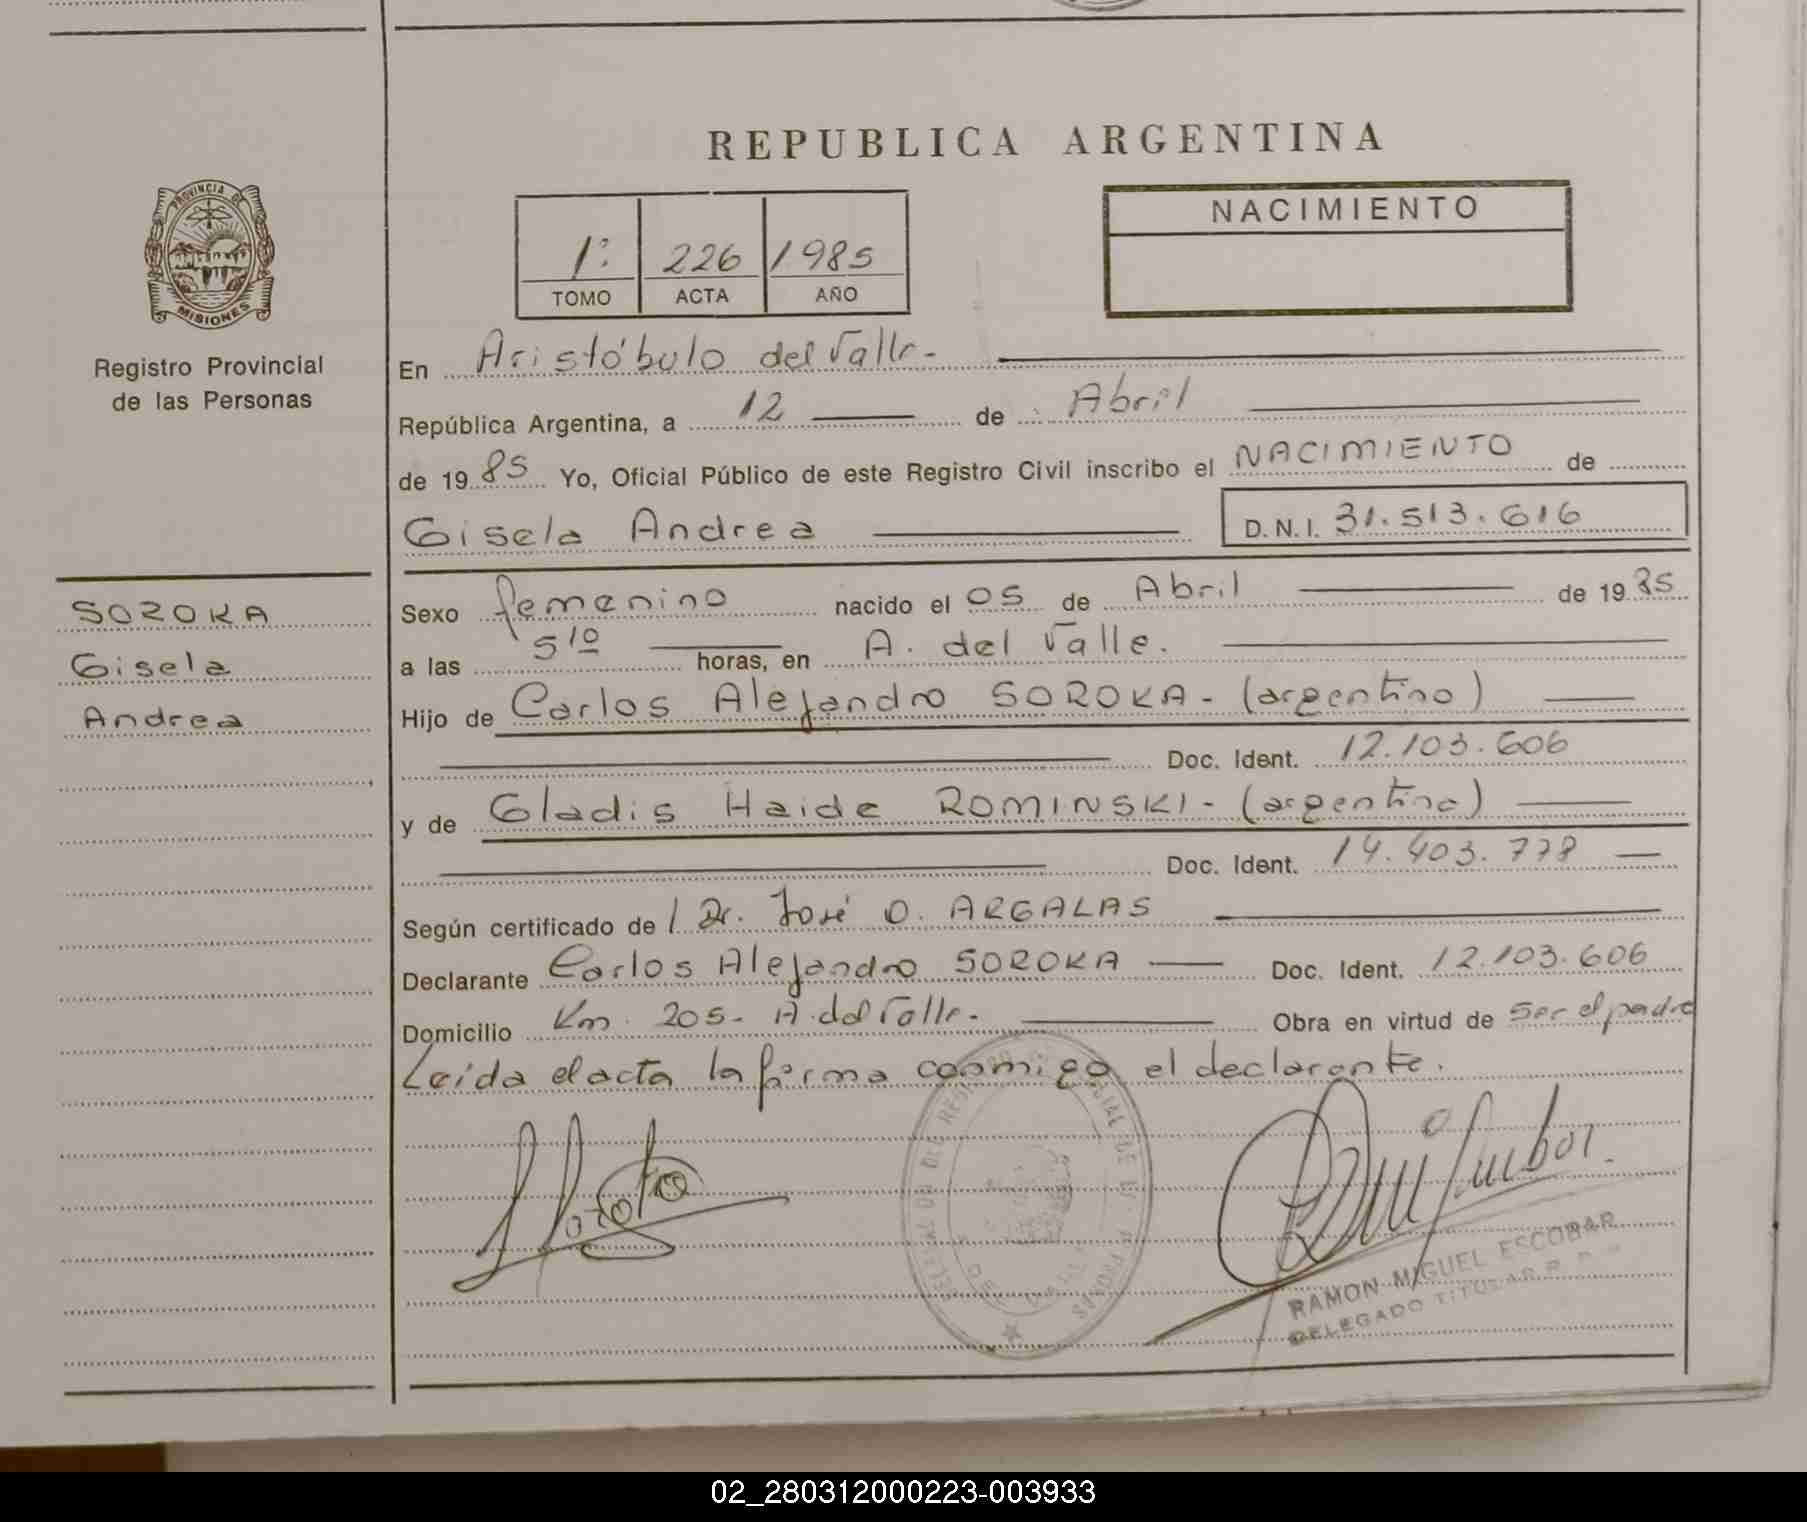 REPUBLICA ARGENTINA
PROVINCIA DE
MISIONES
Registro Provincial
de las Personas
1º
226
1985
TOMO
ACTA
AÑO
NACIMIENTO
En Aristóbulo del Valle.
República Argentina, a 12 de Abril
de 1985 Yo, Oficial Público de este Registro Civil inscribo el NACIMIENTO de
Gisela Andrea D.N.I. 31.513.616
SOROKA
Gisela
Andrea
Sexo femenino nacido el 05 de Abril de 1985
a las 5 10 horas, en A. del Valle.
Hijo de Carlos Alejandro SOROKA - (argentino)
Doc. Ident. 12.103.606
y de Gladis Haide ROMINSKI - (argentina)
Doc. Ident. 14.403.778
Según certificado de / Dr. José O. ARGALAS
Declarante Carlos Alejandro SOROKA Doc. Ident. 12.103.606
Domicilio Km. 205 - A. del Valle. Obra en virtud de ser el padre
Leida el acta la firma conmigo el declarante.
RAMON MIGUEL ESCOBAR
DELEGADO TITULAR R. P.
02_280312000223-003933